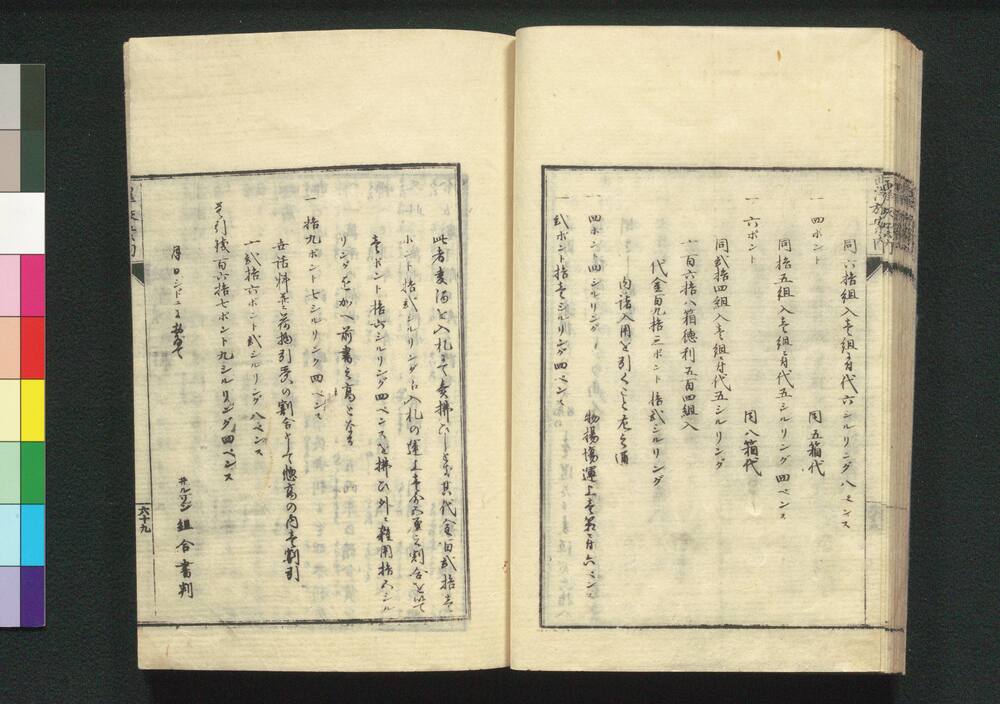 同六拾組入壱組ニ付代六シルリング八ペンス
一 四ポント 同五箱代
同拾五組入壱組ニ付代五シルリング四ペンス
一 六ポント 同八箱代
同弐拾四組入壱組ニ付代五シルリング
〆百六拾八箱徳利五百四組入
代金百九拾三ポント拾弐シルリング
内諸入用を引くこと左之通
一 四ポント四シルリング 物揚場運上壱箱ニ付六ペンス
一 弐ポント拾壱シルリング四ペンス
此者麦酒を入札にて売拂ひし其代金百弐拾壱
ポント拾弐シルリング 入札の運上 割合を以て
壱ポント拾六シルリング四ペンスを拂ひ外ニ雑用拾五シル
リングをかへ前書之高となる
一 拾九ポント七シルリング四ペンス
世話料并荷物引受の割合として惣高の内壱割引
〆弐拾六ポント弐シルリング八ペンス
差引残百六拾七ポント九シルリング四ペンス
月日ロンドンに於て
組合書判
六十九
西洋旅案内